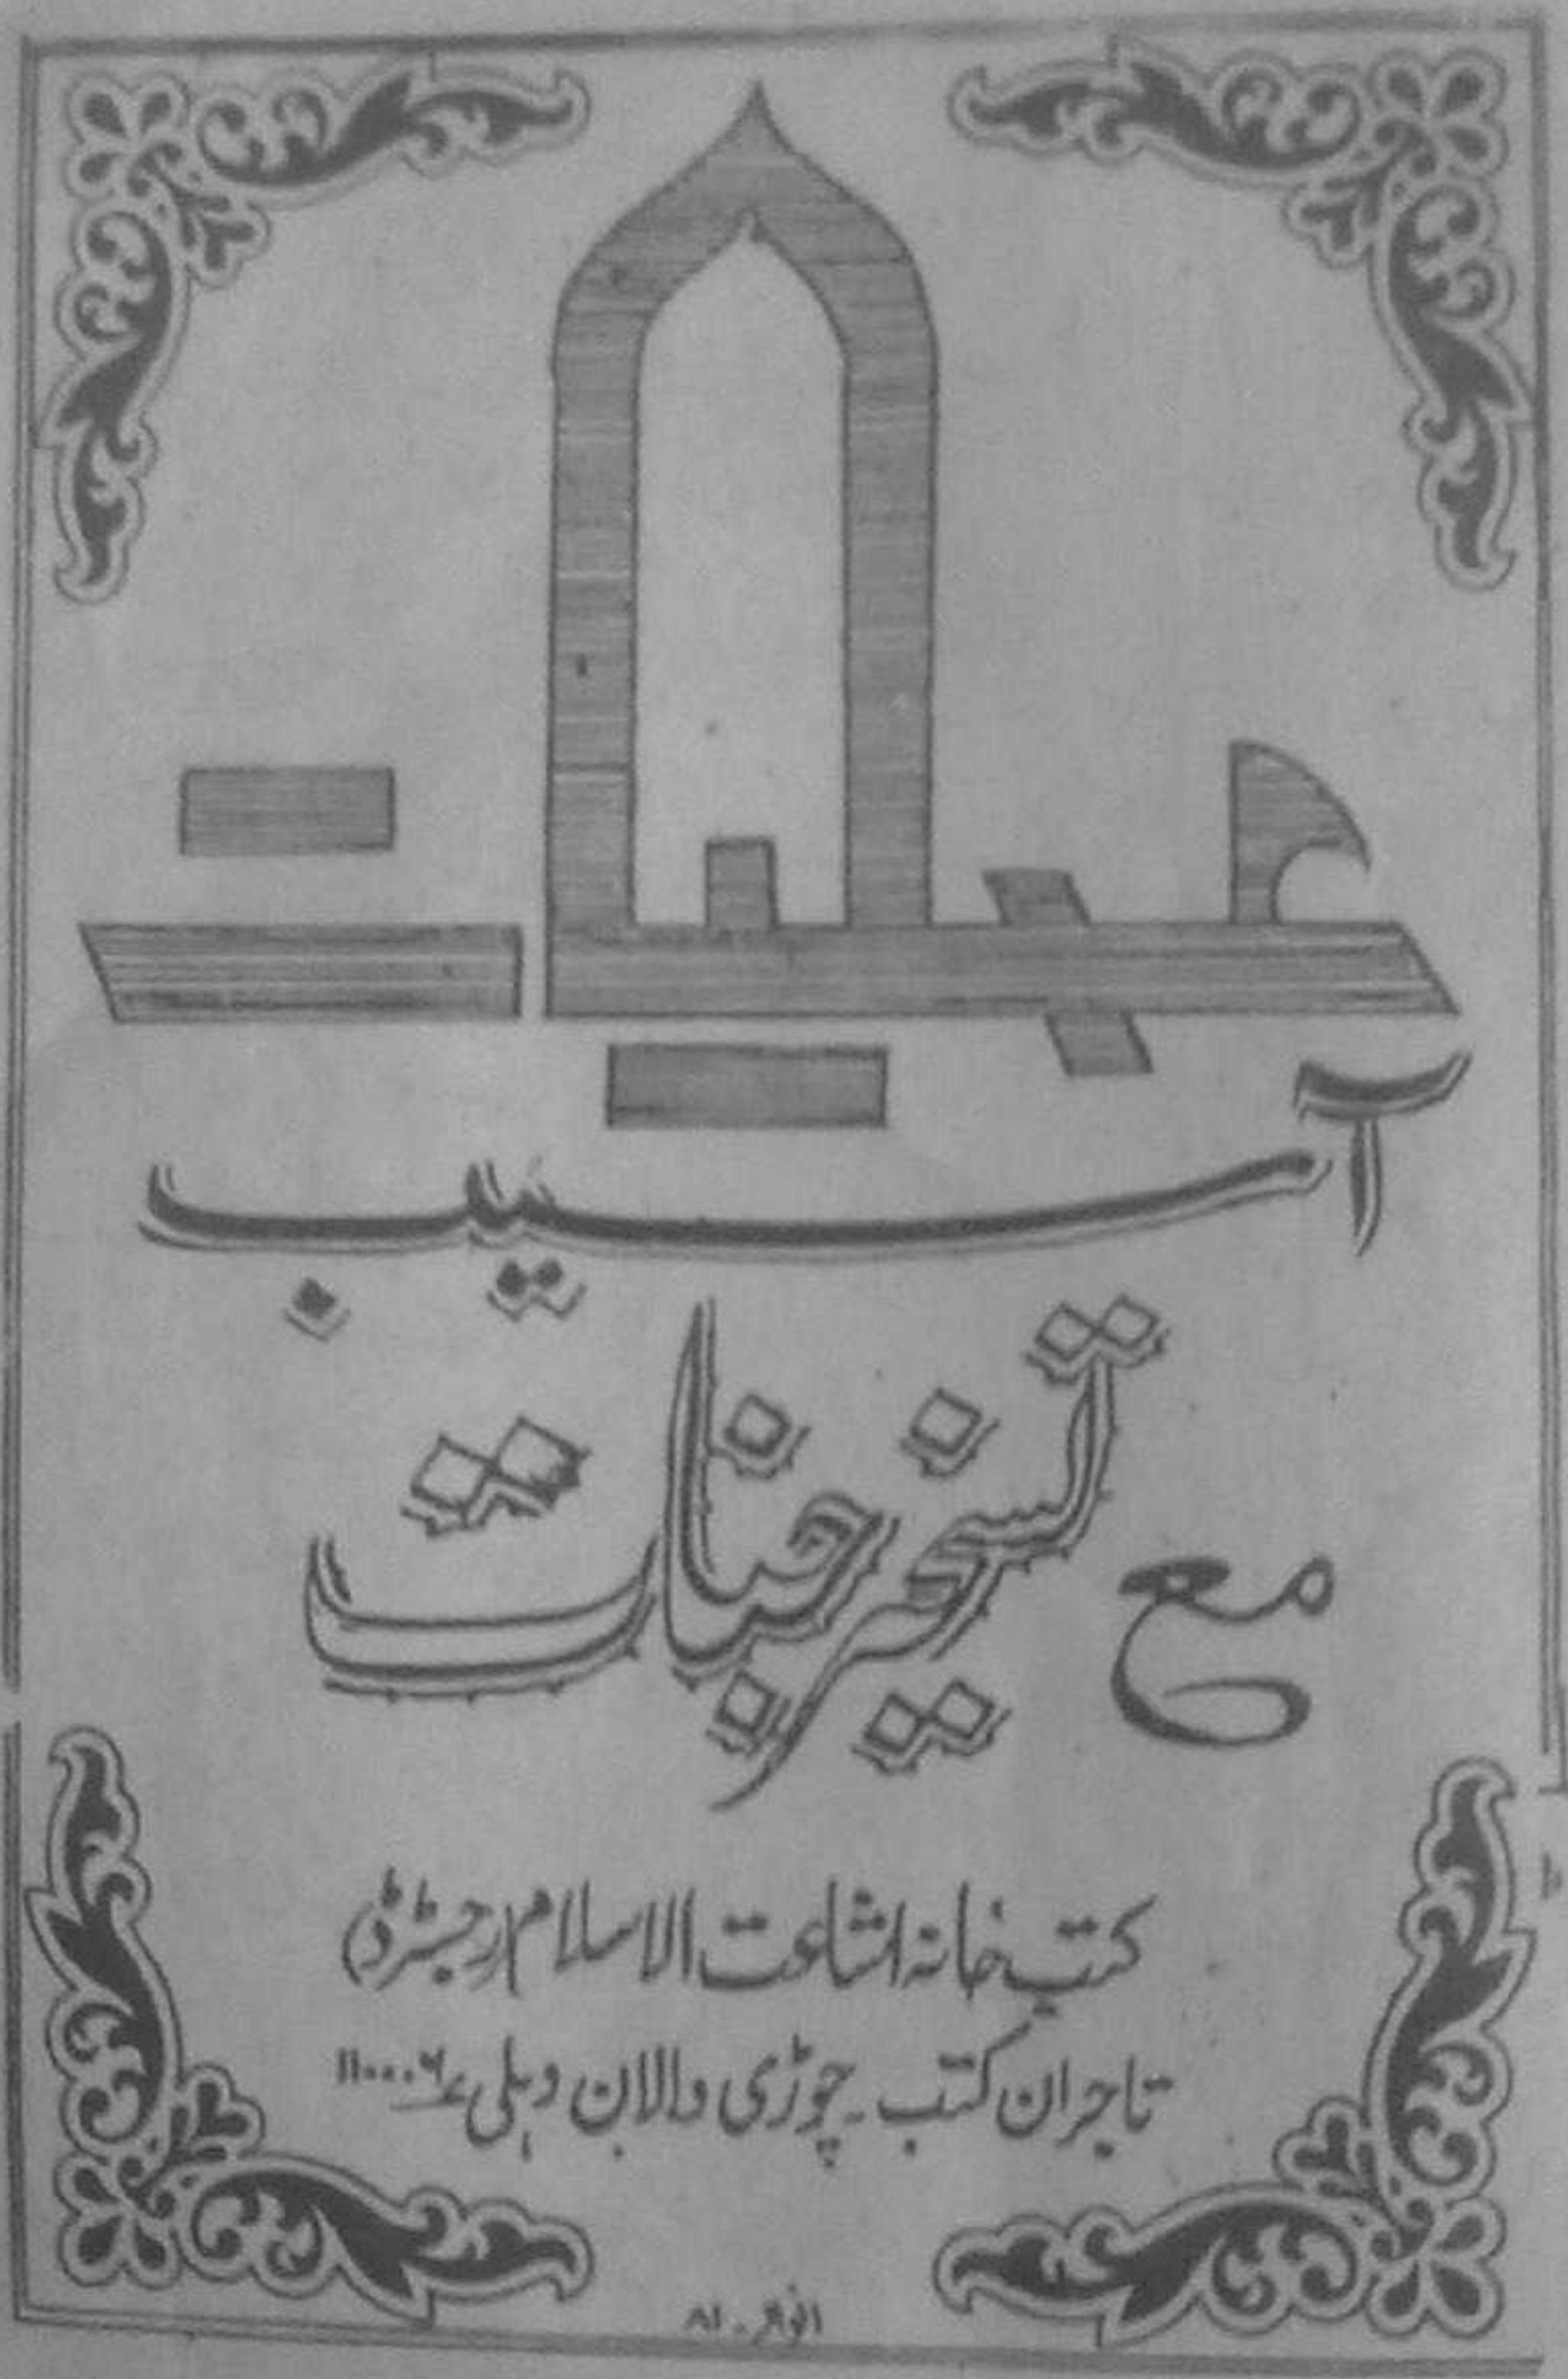 عملیات
آسیب
مع تسخیر جنات
کتب خانہ اشاعت الاسلام (رجسٹرڈ)
تاجران کتب ۔ چوڑی والان دہلی ۱۱۰۰۰۶
۸۱